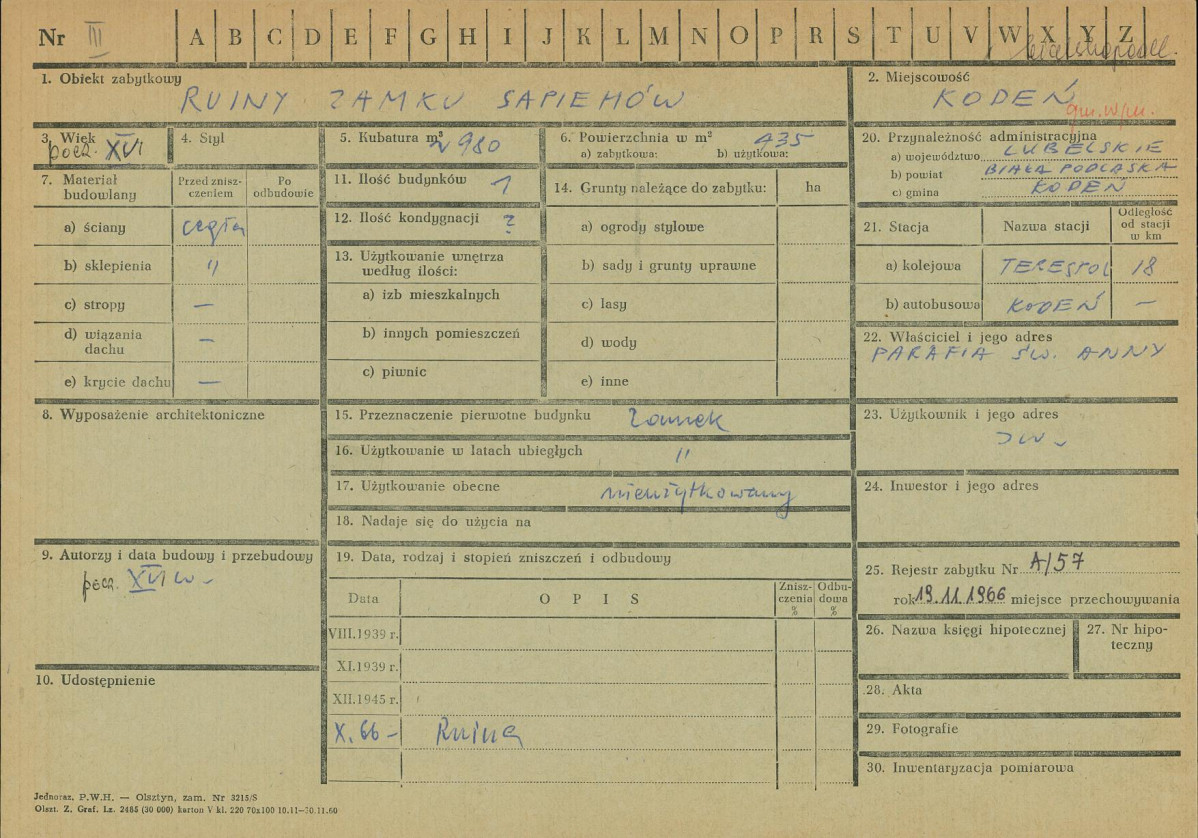 Nr III A B C D E F G H I J K L M N O P R S T U V W X Y Z
1. Obiekt zabytkowy
RUINY ZAMKU SAPIEHÓW
2. Miejscowość
KODEŃ
3. Wiek
pocz. XVI
4. Styl
5. Kubatura m³
~ 980
6. Powierzchnia w m²
435
a) zabytkowa: b) użytkowa:
20. Przynależność administracyjna
a) województwo LUBELSKIE
b) powiat BIAŁA PODLASKA
c) gmina KODEŃ
7. Materiał budowlany
Przed znisz-
czeniem
Po
odbudowie
a) ściany cegła
b) sklepienia "
c) stropy —
d) wiązania
dachu —
e) krycie dachu —
11. Ilość budynków 1
12. Ilość kondygnacji ?
13. Użytkowanie wnętrza
według ilości:
a) izb mieszkalnych
b) innych pomieszczeń
c) piwnic
14. Grunty należące do zabytku: ha
a) ogrody stylowe
b) sady i grunty uprawne
c) lasy
d) wody
e) inne
21. Stacja Nazwa stacji
Odległość
od stacji
w km
a) kolejowa TERESPOL 18
b) autobusowa KODEŃ —
22. Właściciel i jego adres
PARAFIA ŚW. ANNY
8. Wyposażenie architektoniczne
15. Przeznaczenie pierwotne budynku Zamek
16. Użytkowanie w latach ubiegłych "
17. Użytkowanie obecne nieużytkowany
18. Nadaje się do użycia na
23. Użytkownik i jego adres
JW.
24. Inwestor i jego adres
9. Autorzy i data budowy i przebudowy
pocz. XVI w.
19. Data, rodzaj i stopień zniszczeń i odbudowy
Data O P I S
Znisz-
czenia
%
Odbu-
dowa
%
VIII.1939 r.
XI.1939 r.
XII.1945 r.
X. 66 - Ruina
25. Rejestr zabytku Nr A/57
rok 19.11.1966 miejsce przechowywania
26. Nazwa księgi hipotecznej
27. Nr hipo-
teczny
10. Udostępnienie
28. Akta
29. Fotografie
30. Inwentaryzacja pomiarowa
Jednoraz. P.W.H. — Olsztyn, zam. Nr 3215/S
Olszt. Z. Graf. Lz. 2485 (30 000) karton V kl. 220 70x100 10.11—30.11.60